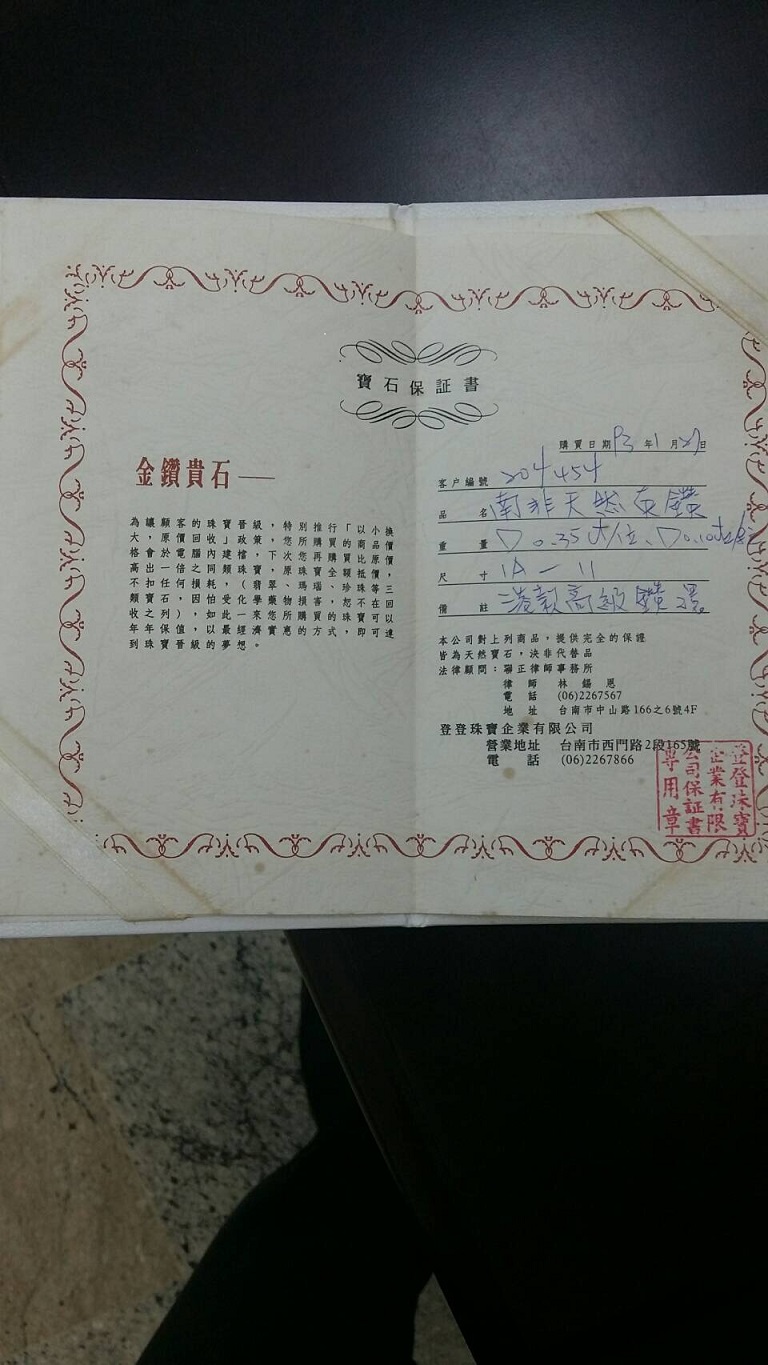 寶石保証書
金鑽貴石——
為讓顧客的珠寶晉級，特別推行「以小換
大，原價回收」政策，您所購買的商品價
格會於電腦內建檔，下次再購買比原價
高出一倍之同類珠寶，原珠寶全額抵價，
不扣任何損耗，（翡翠、瑪瑙、珍珠等三
類寶石，因怕受化學藥物損害，恕不在回
收之列）如此一來您所購買的珠寶可以
年年保值，以最經濟實惠的方式，即可達
到珠寶晉級的夢想
購買日期 93年1月27日
客戶編號 204454
品名 南非天然真鑽
重量 D0.35 D0.10
尺寸 1A-11
備註 港款高級鑽
本公司對上列商品，提供完全的保證
皆為天然寶石，決非代替品
法律顧問：聯正律師事務所
律師 林錫恩
電話 (06)2267567
地址 台南市中山路166之6號4F
登登珠寶企業有限公司
營業地址 台南市西門路2段165號
電話 (06)2267866
登登珠寶
企業有限
公司保証書
專用章